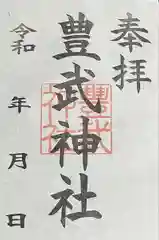 奉拝
豊武神社
令和 年 月 日